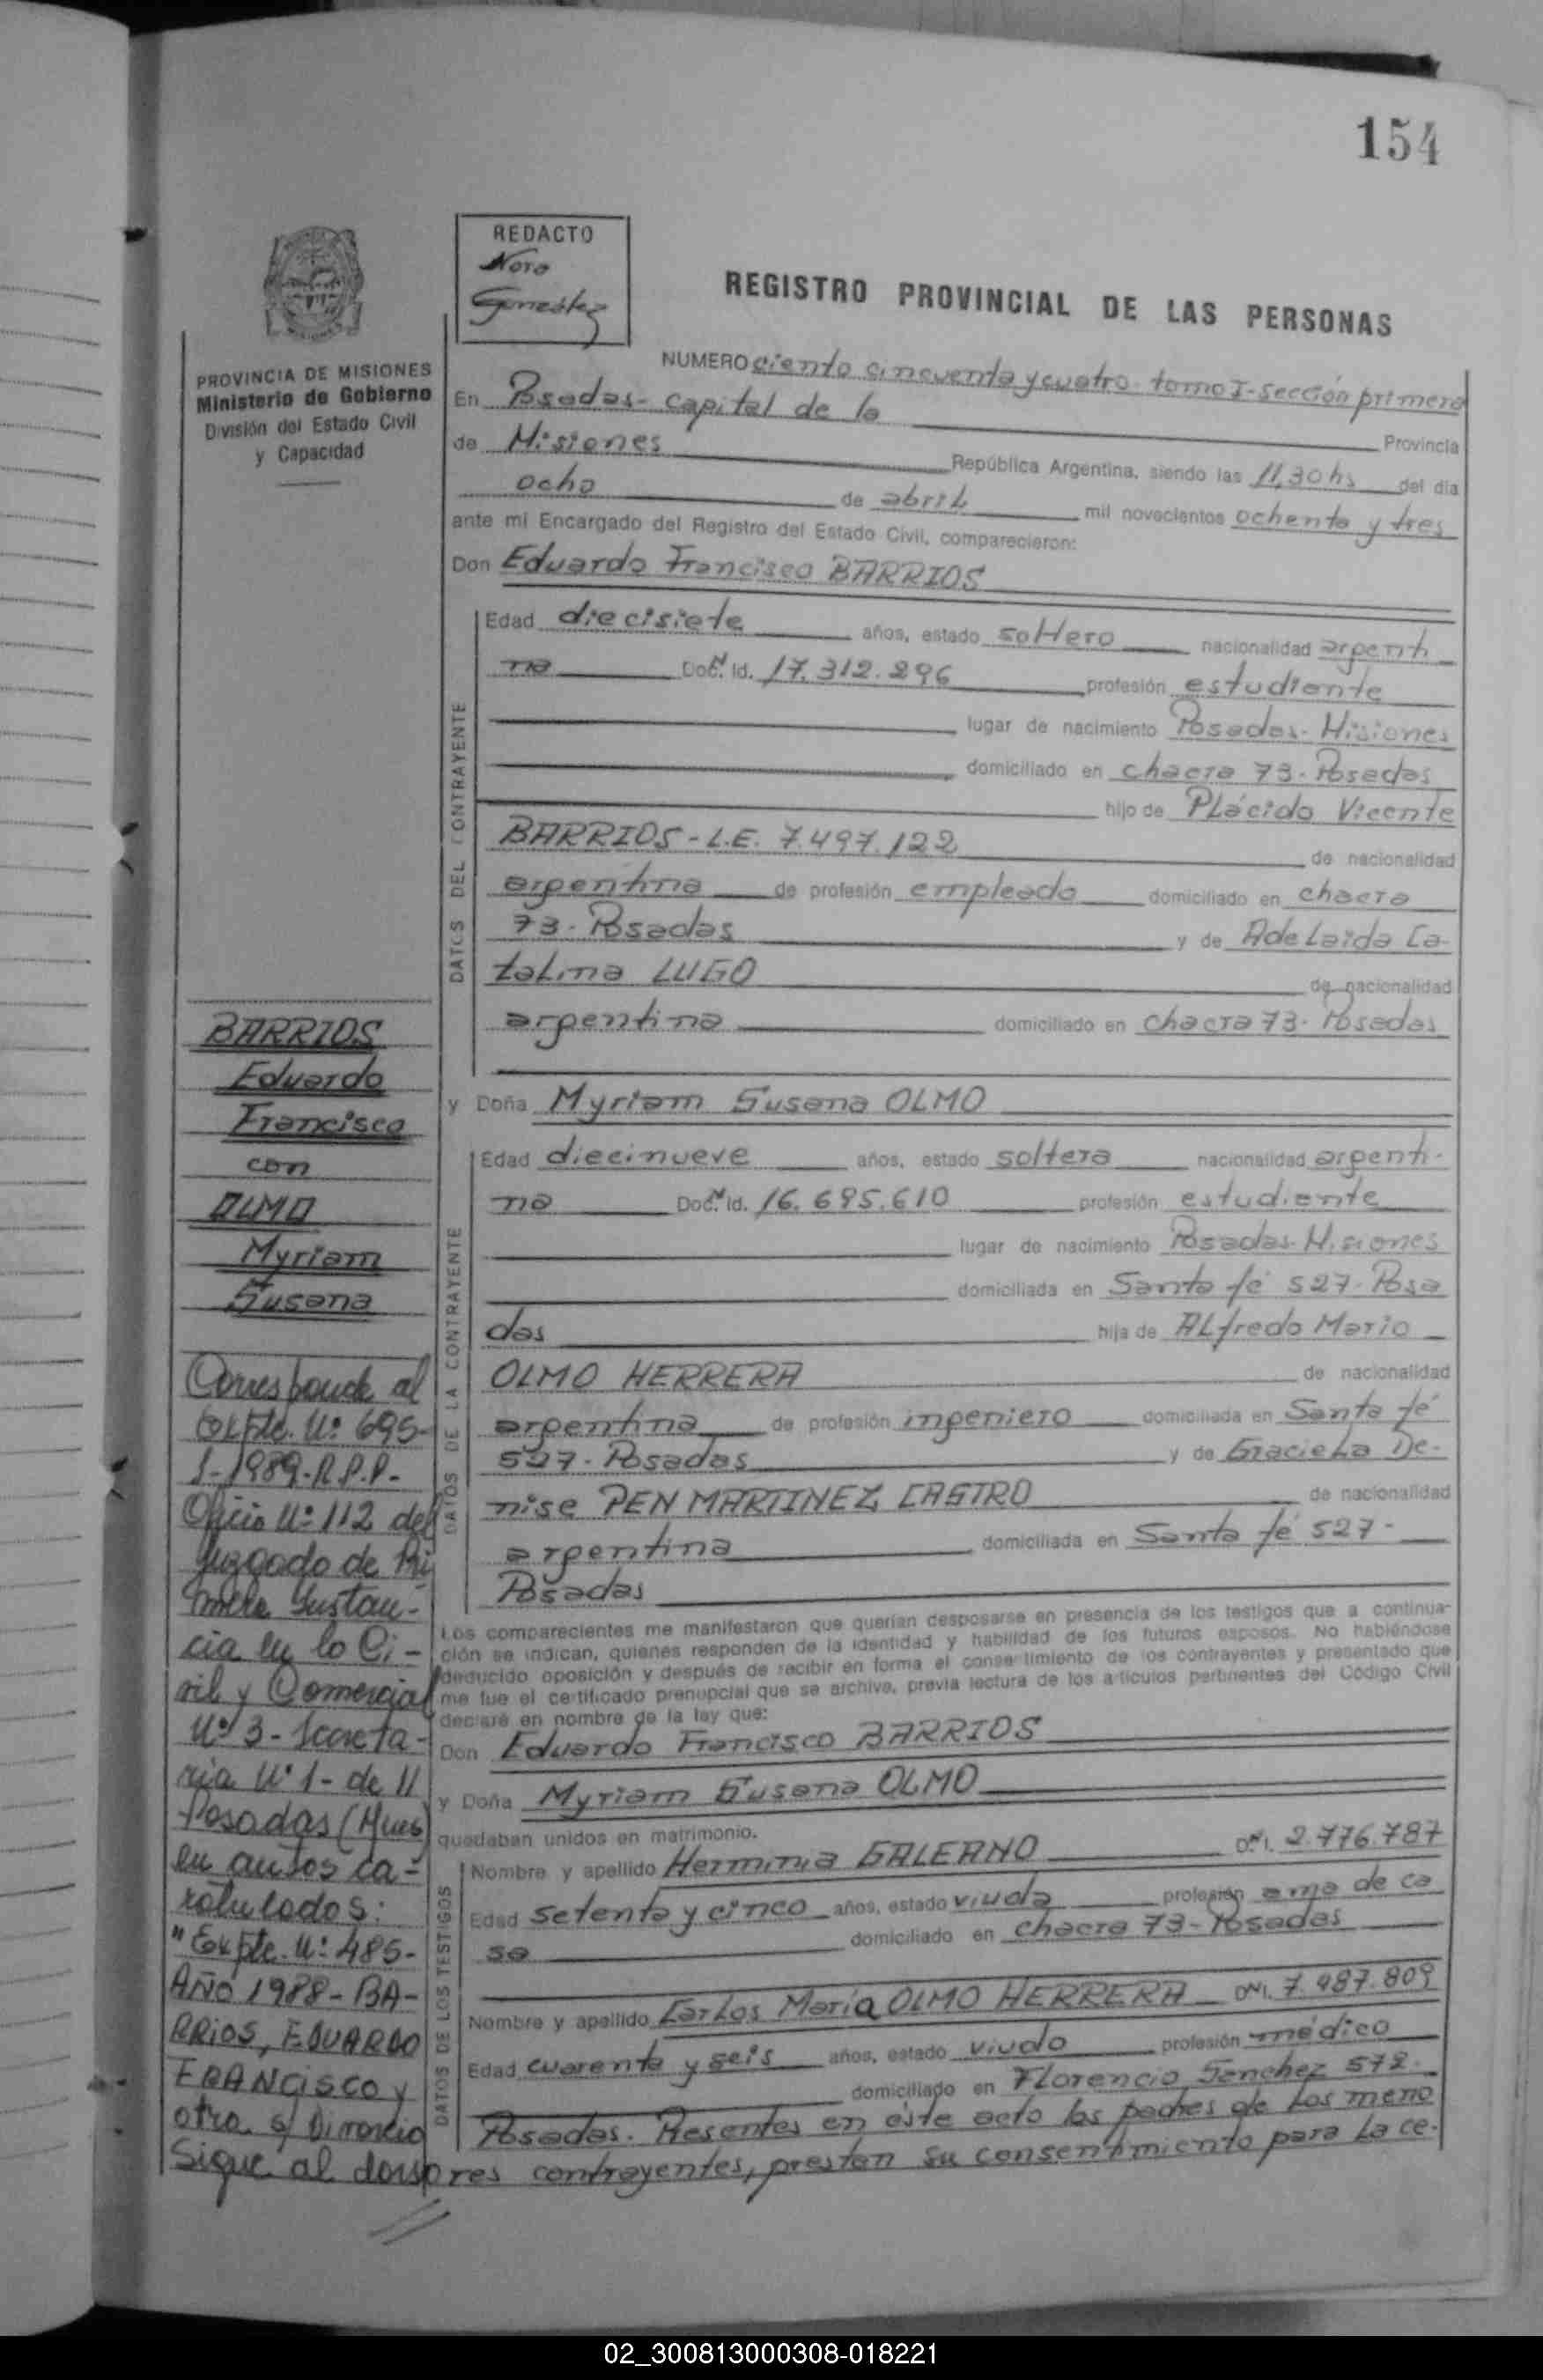 154
REDACTO
Nora
REGISTRO PROVINCIAL DE LAS PERSONAS
PROVINCIA DE MISIONES
Ministerio de Gobierno
División del Estado Civil
y Capacidad
NUMERO ciento cincuenta y cuatro- tomo I- sección primera
En Posadas- capital de la Provincia
de Misiones República Argentina, siendo las 11,30 hs del día
ocho de abril mil novecientos ochenta y tres
ante mi Encargado del Registro del Estado Civil, comparecieron:
Don Eduardo Francisco BARRIOS
DATOS DEL CONTRAYENTE
Edad diecisiete años, estado soltero nacionalidad argenti
na Doc. Id. 17.312.296 profesión estudiante
lugar de nacimiento Posadas- Misiones
domiciliado en chacra 73- Posadas
hijo de Plácido Vicente
BARRIOS - L.E. 7.497.122 de nacionalidad
argentina de profesión empleado domiciliado en chacra
73- Posadas y de Adelaida Ca-
talina LUGO de nacionalidad
argentina domiciliado en chacra 73- Posadas
y Doña Myriam Susana OLMO
DATOS DE LA CONTRAYENTE
Edad diecinueve años, estado soltera nacionalidad argenti-
na Doc. Id. 16.695.610 profesión estudiante
lugar de nacimiento Posadas- Misiones
domiciliada en Santa fé 527- Posa
das hija de Alfredo Mario
OLMO HERRERA de nacionalidad
argentina de profesión ingeniero domiciliada en Santa fé
527- Posadas y de Graciela De-
nise PEN MARTINEZ CASTRO de nacionalidad
argentina domiciliada en Santa fé 527-
Posadas
Los comparecientes me manifestaron que querían desposarse en presencia de los testigos que a continua-
ción se indican, quienes responden de la identidad y habilidad de los futuros esposos. No habiéndose
deducido oposición y después de recibir en forma el consentimiento de los contrayentes y presentado que
me fue el certificado prenupcial que se archiva, previa lectura de los artículos pertinentes del Código Civil
declaré en nombre de la ley que:
Don Eduardo Francisco BARRIOS
y Doña Myriam Susana OLMO
quedaban unidos en matrimonio.
DATOS DE LOS TESTIGOS
Nombre y apellido Herminia GALEANO DNI. 2.776.787
Edad setenta y cinco años, estado viuda profesión ama de ca
sa domiciliado en chacra 73- Posadas
Nombre y apellido Carlos María OLMO HERRERA DNI. 7.487.809
Edad cuarenta y seis años, estado viudo profesión médico
domiciliado en Florencio Sanchez 572-
Posadas. Presentes en éste acto los padres de los meno
res contrayentes, prestan su consentimiento para la ce-
BARRIOS
Eduardo
Francisco
con
OLMO
Myriam
Susana
Corresponde al
Expte. Nº 695-
1989-R.P.P.-
Oficio Nº 112 del
Juzgado de Pri
mera Instan-
cia en lo Ci-
vil y Comercial
Nº 3- Secreta-
ria Nº 1- de
Posadas (Mnes)
en autos ca-
ratulados:
"Expte. Nº 485-
AÑO 1988- BA-
RRIOS, EDUARDO
FRANCISCO y
otra s/ Divorcio
Sigue al dorso
02_300813000308-018221